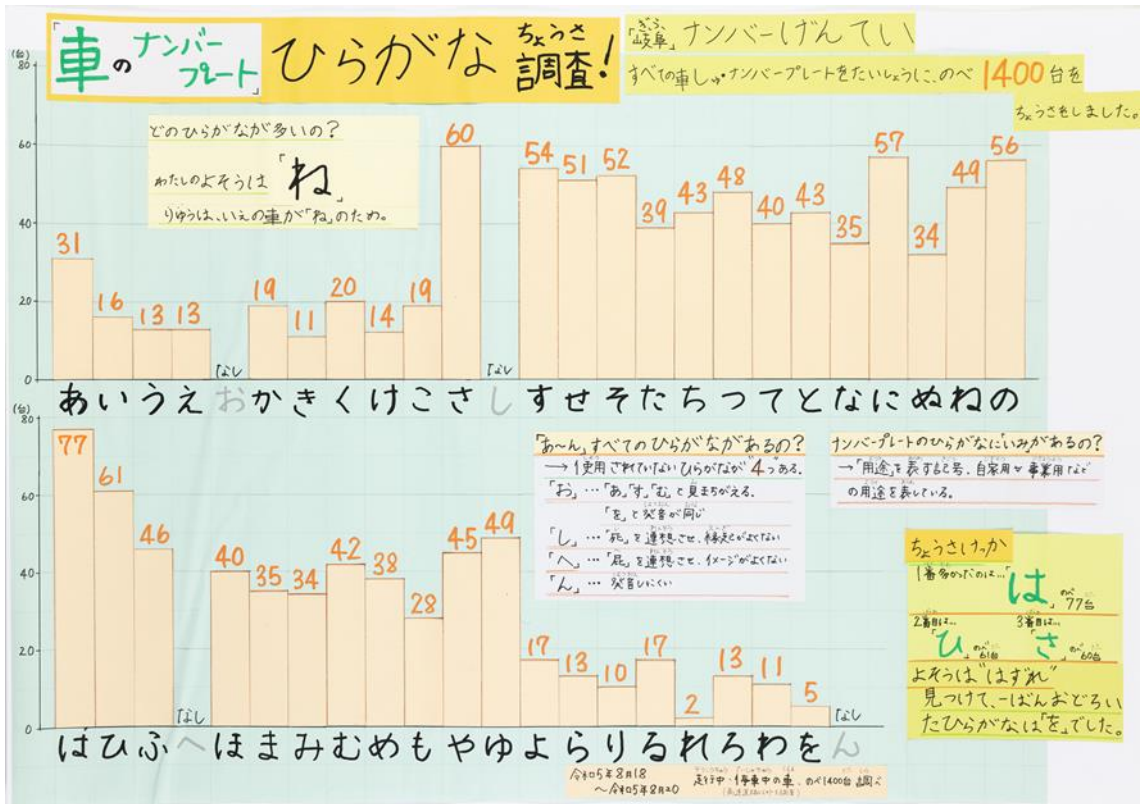 「車のナンバープレート」ひらがな調査!
ちょうさ
「岐阜」ナンバーげんてい
ぎふ
すべての車しゅ・ナンバープレートをたいしょうに、のべ1400台を
ちょうさをしました。
どのひらがなが多いの?
わたしのよそうは「ね」
りゆうは、いえの車が「ね」のため。
(台)
80
60
40
20
0
31 16 13 13 「なし 19 11 20 14 19 60 「なし 54 51 52 39 43 48 40 43 35 57 34 49 56
あいうえおかきくけこさしすせそたちつてとなにぬねの
(台)
80
60
40
20
0
77 61 46 「なし 40 35 34 42 38 28 45 49 17 13 10 17 2 13 11 5 「なし
はひふへほまみむめもやゆよらりるれろわをん
「あ~ん」すべてのひらがながあるの?
→使用されていないひらがなが"4つ"ある。
「お」…「あ」「す」「む」と見まちがえる。
「を」と発音が同じ
「し」…「死」を連想させ、縁起がよくない
「へ」…「屁」を連想させ、イメージがよくない
「ん」…発音しにくい
ナンバープレートのひらがなにいみがあるの?
→「用途」を表す記号、自家用や事業用など
の用途を表している。
ちょうさけっか
1番多かったのは…「は」のべ77台
2番目は…「ひ」のべ61台
3番目は…「さ」のべ60台
よそうは"はずれ"
見つけて、一ばんおどろい
たひらがなは「を」でした。
令和5年8月18
~令和5年8月20
走行中・停車中の車、のべ1400台調べ